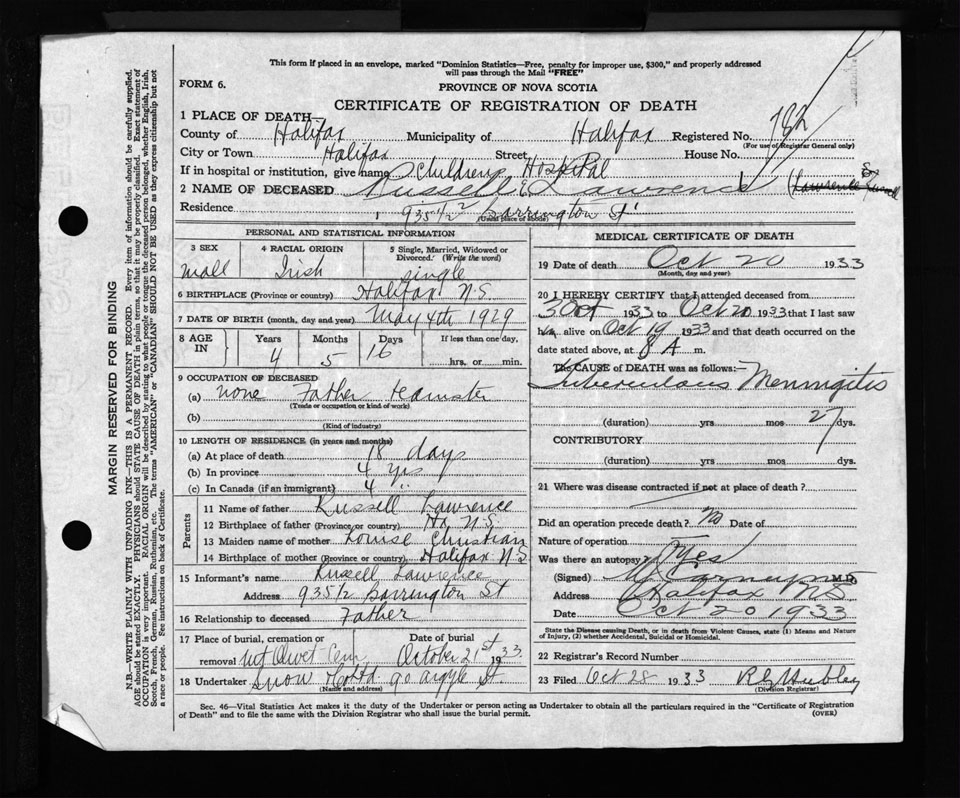 This form if placed in an envelope, marked "Dominion Statistics—Free, penalty for improper use, $300," and properly addressed
will pass through the Mail "FREE"
FORM 6.
PROVINCE OF NOVA SCOTIA
CERTIFICATE OF REGISTRATION OF DEATH
1 PLACE OF DEATH—
County of Halifax Municipality of Halifax Registered No. 782
(For use of Registrar General only)
City or Town Halifax Street House No.
If in hospital or institution, give name Childrens Hospital
2 NAME OF DECEASED Russell Lawrence
Residence 935 1/2 Barrington St
(Usual place of abode)
PERSONAL AND STATISTICAL INFORMATION
3 SEX 4 RACIAL ORIGIN 5 Single, Married, Widowed or
Divorced. (Write the word)
Irish single
6 BIRTHPLACE (Province or country) Halifax N.S.
7 DATE OF BIRTH (month, day and year) May 4th 1929
8 AGE IN Years Months Days If less than one day,
4 5 16 hrs. or min.
9 OCCUPATION OF DECEASED
(a) none Father teamster
(Trade or occupation or kind of work)
(b)
(Kind of industry)
10 LENGTH OF RESIDENCE (in years and months)
(a) At place of death 18 days
(b) In province 4 yrs
(c) In Canada (if an immigrant) 4 "
Parents
11 Name of father Russell Lawrence
12 Birthplace of father (Province or country) Hx N.S.
13 Maiden name of mother Louise Christian
14 Birthplace of mother (Province or country) Halifax N S
15 Informant's name Russell Lawrence
Address 935 1/2 Barrington St
16 Relationship to deceased Father
17 Place of burial, cremation or Date of burial
removal Mt Olivet Cem October 21st 1933
18 Undertaker Snow 90 Argyle St
(Name and address)
MEDICAL CERTIFICATE OF DEATH
19 Date of death Oct 20 1933
(Month, day and year)
20 I HEREBY CERTIFY that I attended deceased from
3 Oct 1933 to Oct 20 1933 that I last saw
alive on Oct 19 1933 and that death occurred on the
date stated above, at 8 A m.
The CAUSE of DEATH was as follows:—
Tuberculous Meningitis
(duration) yrs mos 27 dys.
CONTRIBUTORY
(duration) yrs mos dys.
21 Where was disease contracted if not at place of death?
Did an operation precede death? No Date of
Nature of operation
Was there an autopsy? Yes
(Signed) M.D.
Address Halifax NS
Date Oct 20 1933
State the Disease causing Death, or in death from Violent Causes, state (1) Means and Nature
of Injury, (2) whether Accidental, Suicidal or Homicidal.
22 Registrar's Record Number
23 Filed Oct 28 1933 Hubley
(Division Registrar)
Sec. 46—Vital Statistics Act makes it the duty of the Undertaker or person acting as Undertaker to obtain all the particulars required in the "Certificate of Registration
of Death" and to file the same with the Division Registrar who shall issue the burial permit.
(OVER)
MARGIN RESERVED FOR BINDING
N.B.—WRITE PLAINLY WITH UNFADING INK—THIS IS A PERMANENT RECORD. Every item of information should be carefully supplied.
AGE should be stated EXACTLY. PHYSICIANS should state CAUSE OF DEATH in plain terms, so that it may be properly classified. Exact statement of
OCCUPATION is very important. RACIAL ORIGIN will be described by stating to what people or tongue the deceased person belonged, whether English, Irish,
Scotch, French, German, Russian, Ruthenian, etc. The terms "AMERICAN" or "CANADIAN" SHOULD NOT BE USED as they express citizenship but not
a race or people. See instructions on back of Certificate.